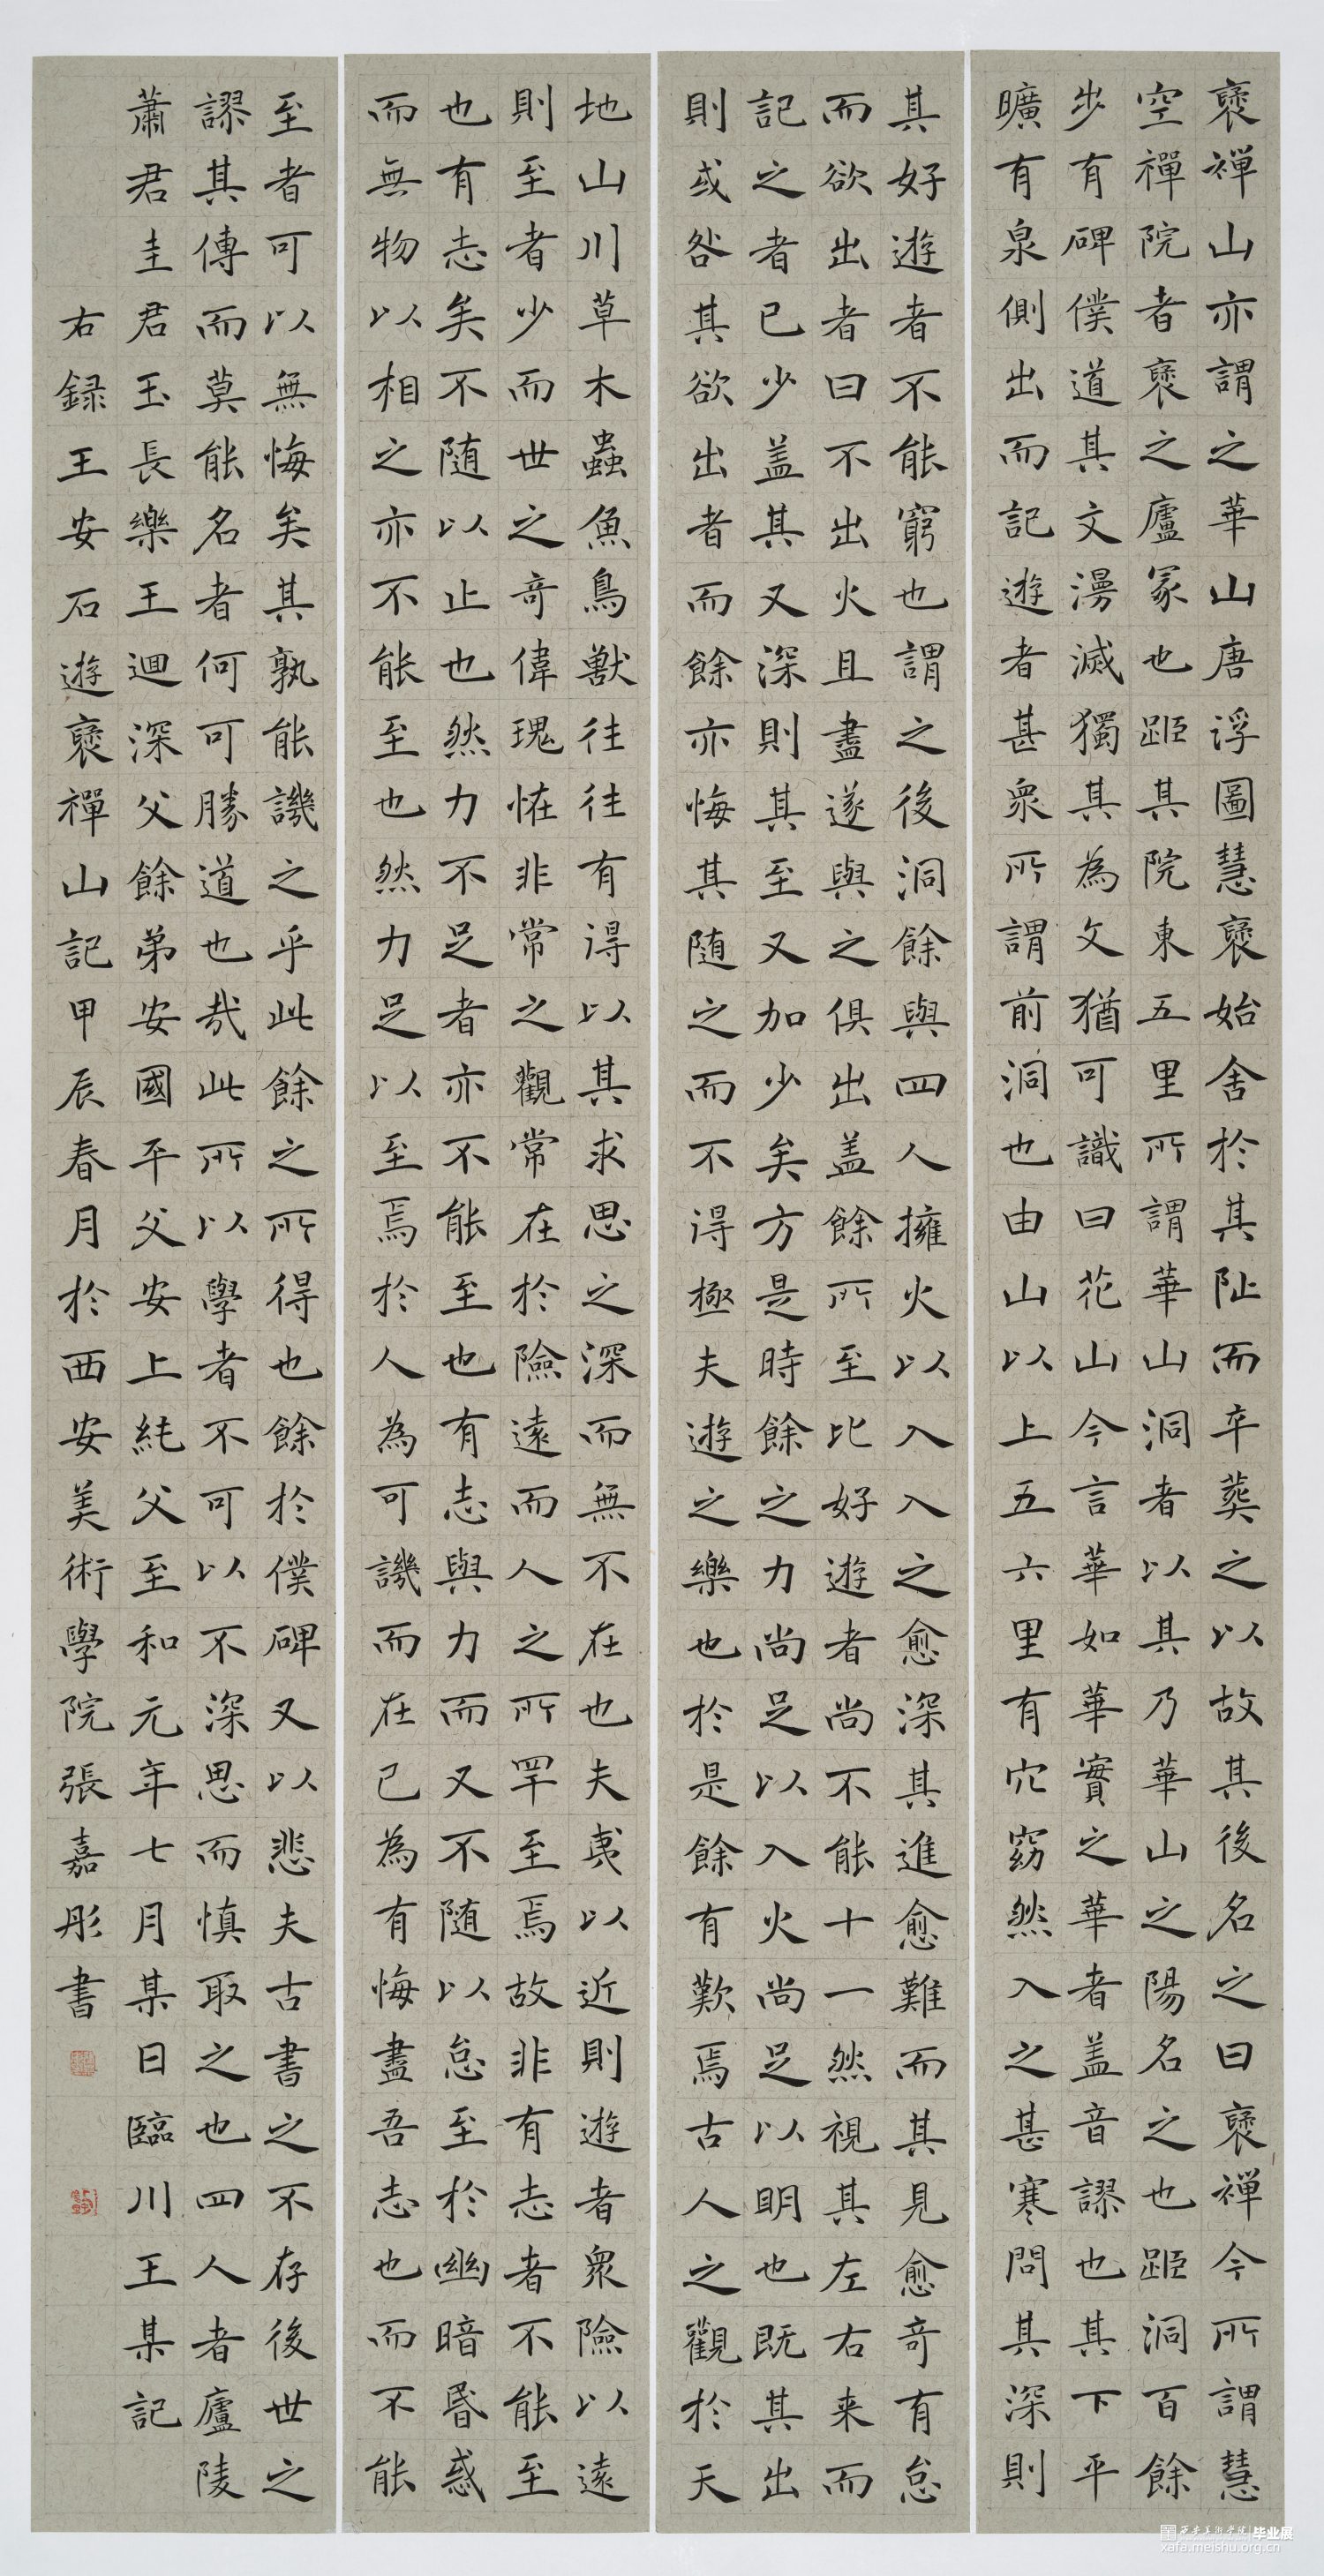 褒禅山亦謂之華山唐浮圖慧褒始舍於其阯而卒葬之以故其後名之曰褒禅今所謂慧
空禪院者褒之廬冢也距其院東五里所謂華山洞者以其乃華山之陽名之也距洞百餘
步有碑僕道其文漫滅獨其為文猶可識曰花山今言華如華實之華者盖音謬也其下平
曠有泉側出而記遊者甚衆所謂前洞也由山以上五六里有穴窈然入之甚寒問其深則
其好遊者不能窮也謂之後洞餘與四人擁火以入入之愈深其進愈難而其見愈奇有怠
而欲出者曰不出火且盡遂與之俱出盖餘所至比好遊者尚不能十一然視其左右来而
記之者已少盖其又深則其至又加少矣方是時餘之力尚足以入火尚足以明也既其出
則或咎其欲出者而餘亦悔其随之而不得極夫遊之樂也於是餘有歎焉古人之觀於天
地山川草木蟲魚鳥獸往往有得以其求思之深而無不在也夫夷以近則遊者衆險以遠
則至者少而世之奇偉瑰怪非常之觀常在於險遠而人之所罕至焉故非有志者不能至
也有志矣不随以止也然力不足者亦不能至也有志與力而又不随以怠至於幽暗昏惑
而無物以相之亦不能至也然力足以至焉於人為可譏而在己為有悔盡吾志也而不能
至者可以無悔矣其孰能譏之乎此餘之所得也餘於僕碑又以悲夫古書之不存後世之
謬其傳而莫能名者何可勝道也哉此所以學者不可以不深思而慎取之也四人者廬陵
蕭君圭君玉長樂王迴深父餘弟安國平父安上純父至和元年七月某日臨川王某記
右録王安石遊褒禪山記甲辰春月於西安美術學院張嘉彤書
西安美术学院 毕业展
xafa.meishu.org.cn